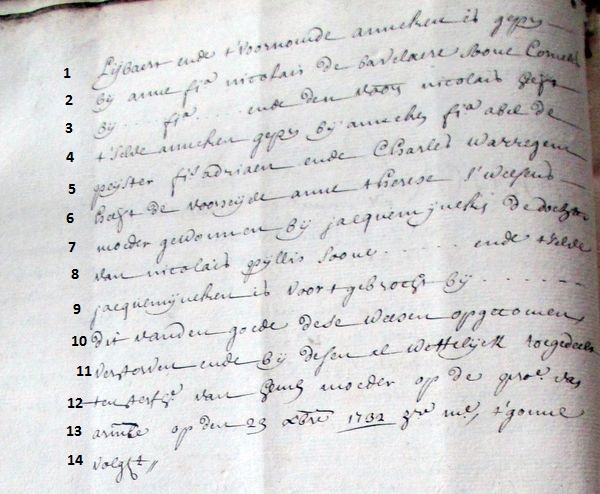 1 Lijbaert ende t'voornoemde anneken is gepr
2 bij anne fia nicolais de bavelaere soone Cornelis
3 bij .... fia .... ende den voorn nicolais heeft
4 t'selde anneken gepr bij anneken fia abel de
5 peijster fs adriaen ende Charles warregem
6 heeft de voorseijde anne therese s'weesens
7 moeder gewonnen bij jacquemijnken de dochter
8 van nicolais pijllis soone ........ ende t'selde
9 jacquemijneken is voortgebrocht bij ........
10 dit vanden goede dese weesen opgecomen,
11 verstorven ende bij desen al wettelijck toegedeelt
12 ten sterfve van heml moeder op de proe van
13 op den 23 xbre 1732 t'gonne
14 volght //